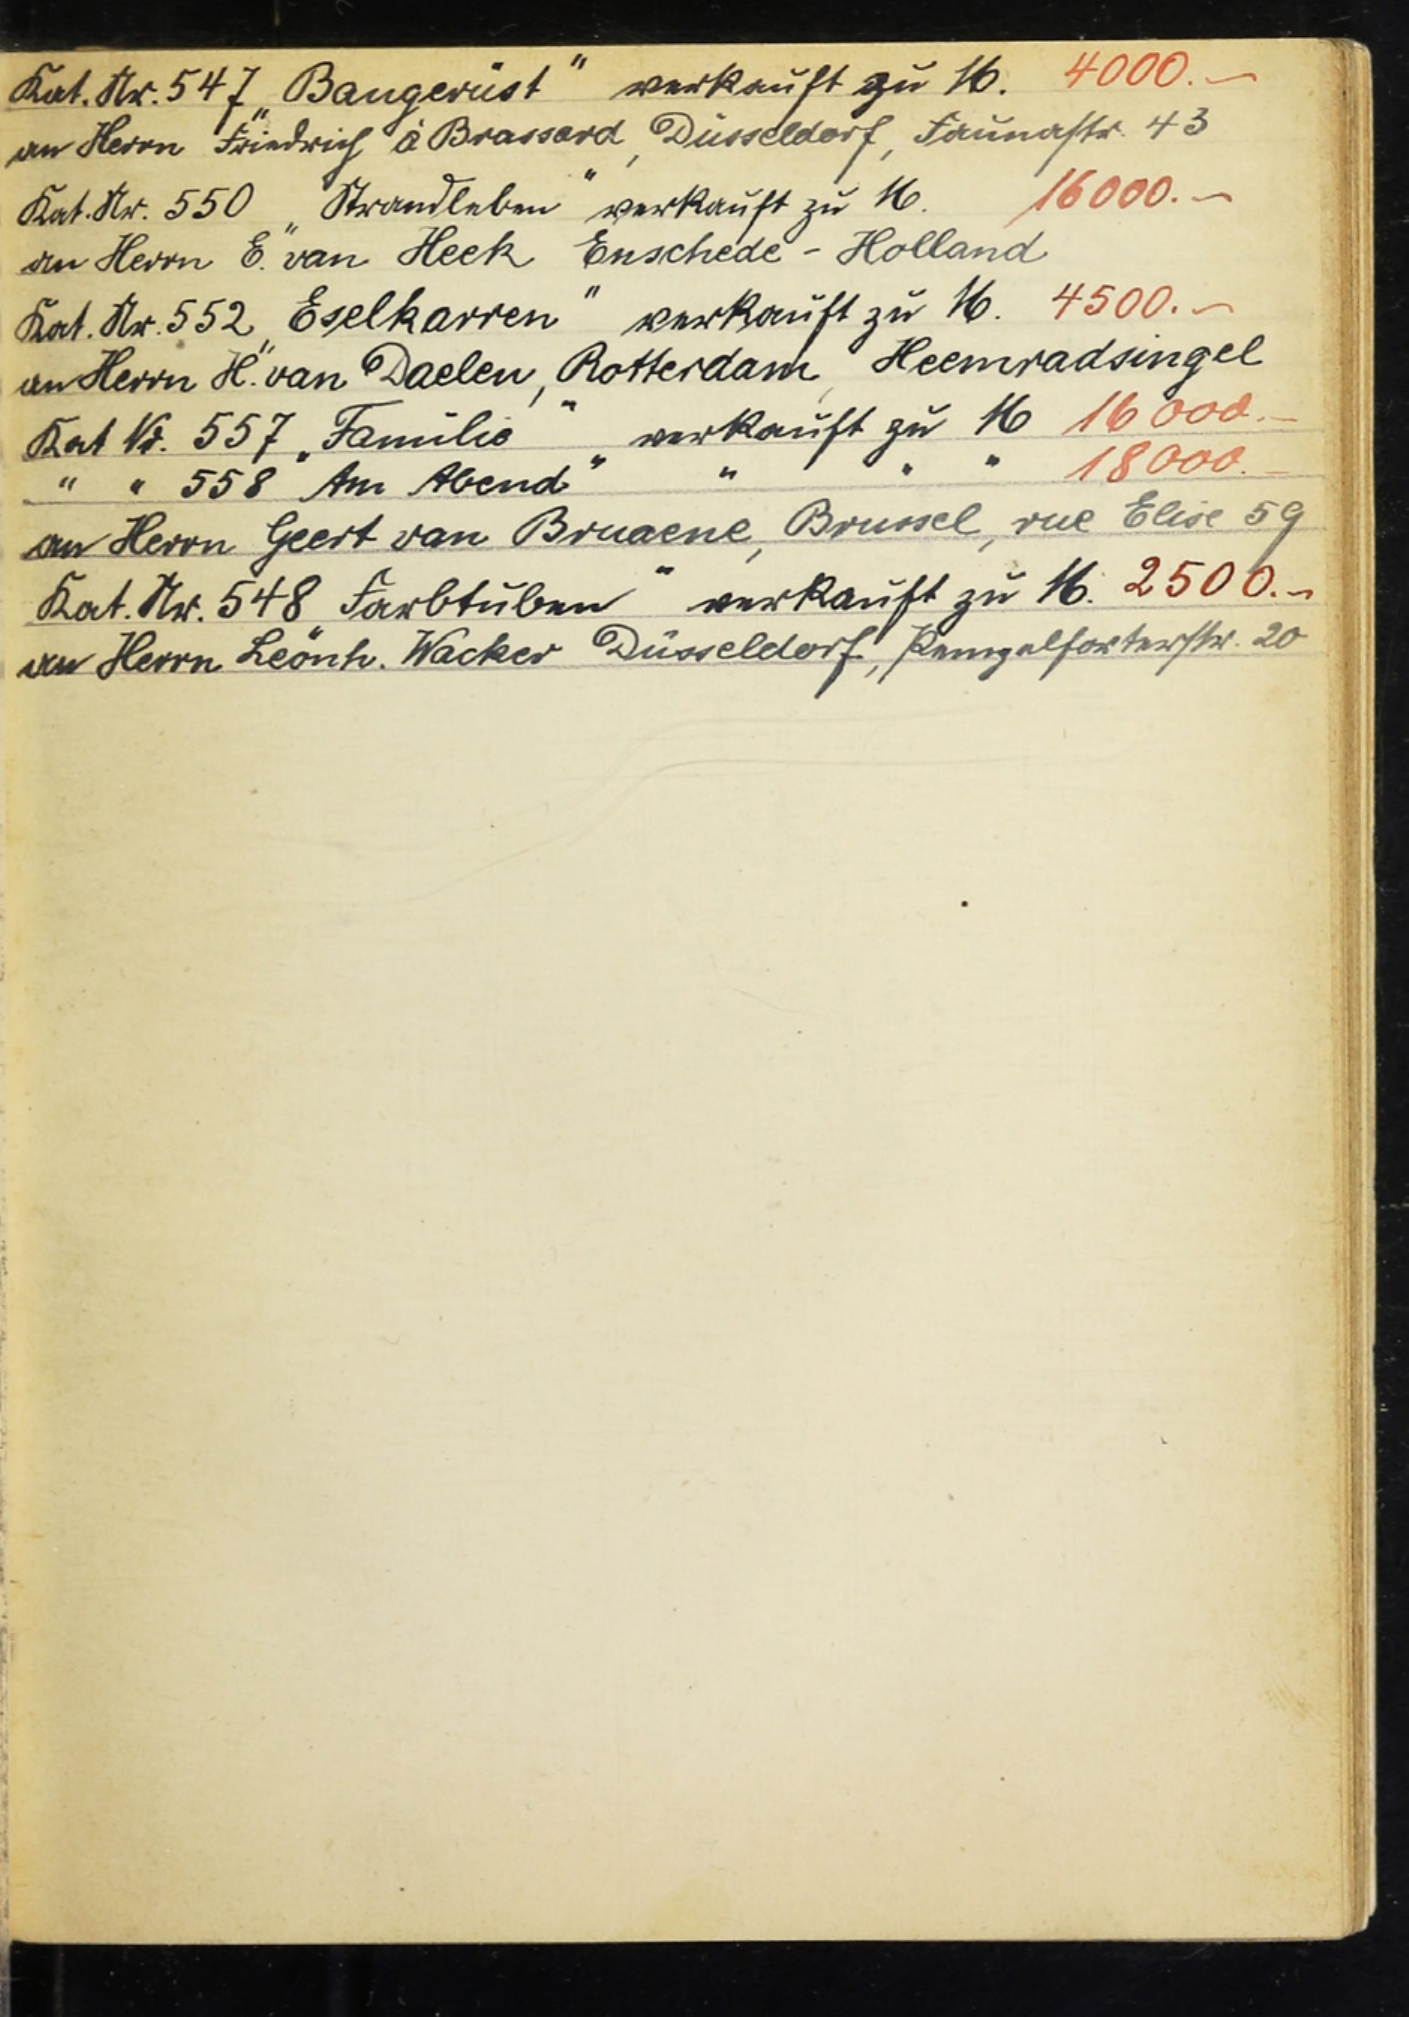 Kat. Nr. 547 „Baugerüst" verkauft zu M. 4000.—
an Herrn Friedrich à Brassard, Düsseldorf, Faunastr. 43
Kat. Nr. 550 „Strandleben" verkauft zu M. 16000.—
an Herrn E. van Heek Enschede - Holland
Kat. Nr. 552 „Eselkarren" verkauft zu M. 4500.—
an Herrn H. van Daelen, Rotterdam, Heemradsingel
Kat Nr. 557 „Familie" verkauft zu M 16000.—
" " 558 „Am Abend" " " " 18000.—
an Herrn Geert van Bruaene, Brussel, rue Elise 59
Kat. Nr. 548 „Farbtuben" verkauft zu M. 2500.—
an Herrn Leonh. Wacker Düsseldorf, Pempelforterstr. 20